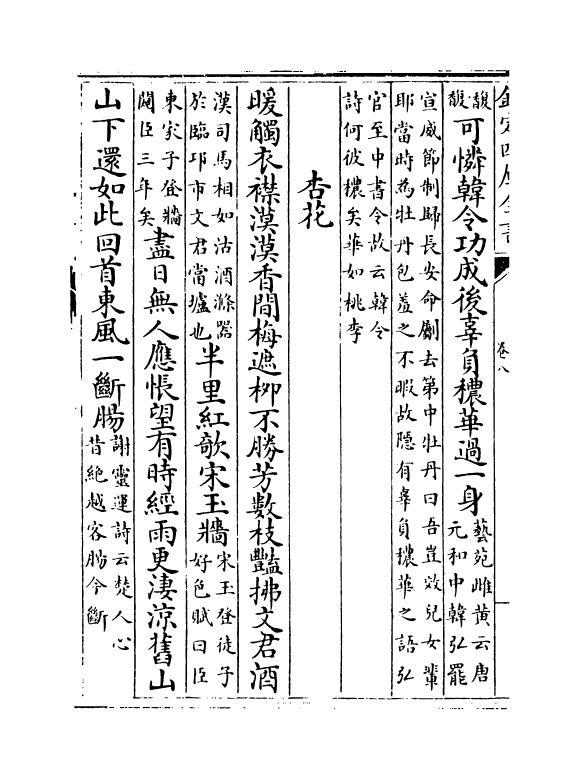 欽定四庫全書
卷八
馥馥可憐韓令功成後辜負穠華過一身藝苑雌黄云唐元和中韓弘罷
宣威節制歸長安命劚去第中牡丹曰吾豈效兒女輩耶當時為牡丹包羞之不暇故隠有辜負穠華之語弘
官至中書令故云韓令詩何彼穠矣華如桃李
杏花
暖觸衣襟漠漠香間梅遮柳不勝芳數枝豔拂文君酒
漢司馬相如沽酒滌器於臨邛市文君當壚也半里紅欹宋玉牆宋玉登徒子好色賦曰臣
東家子登牆闚臣三年矣盡日無人應悵望有時經雨更淒涼舊山
山下還如此回首東風一斷腸謝靈運詩云楚人心昔絶越客腸今斷